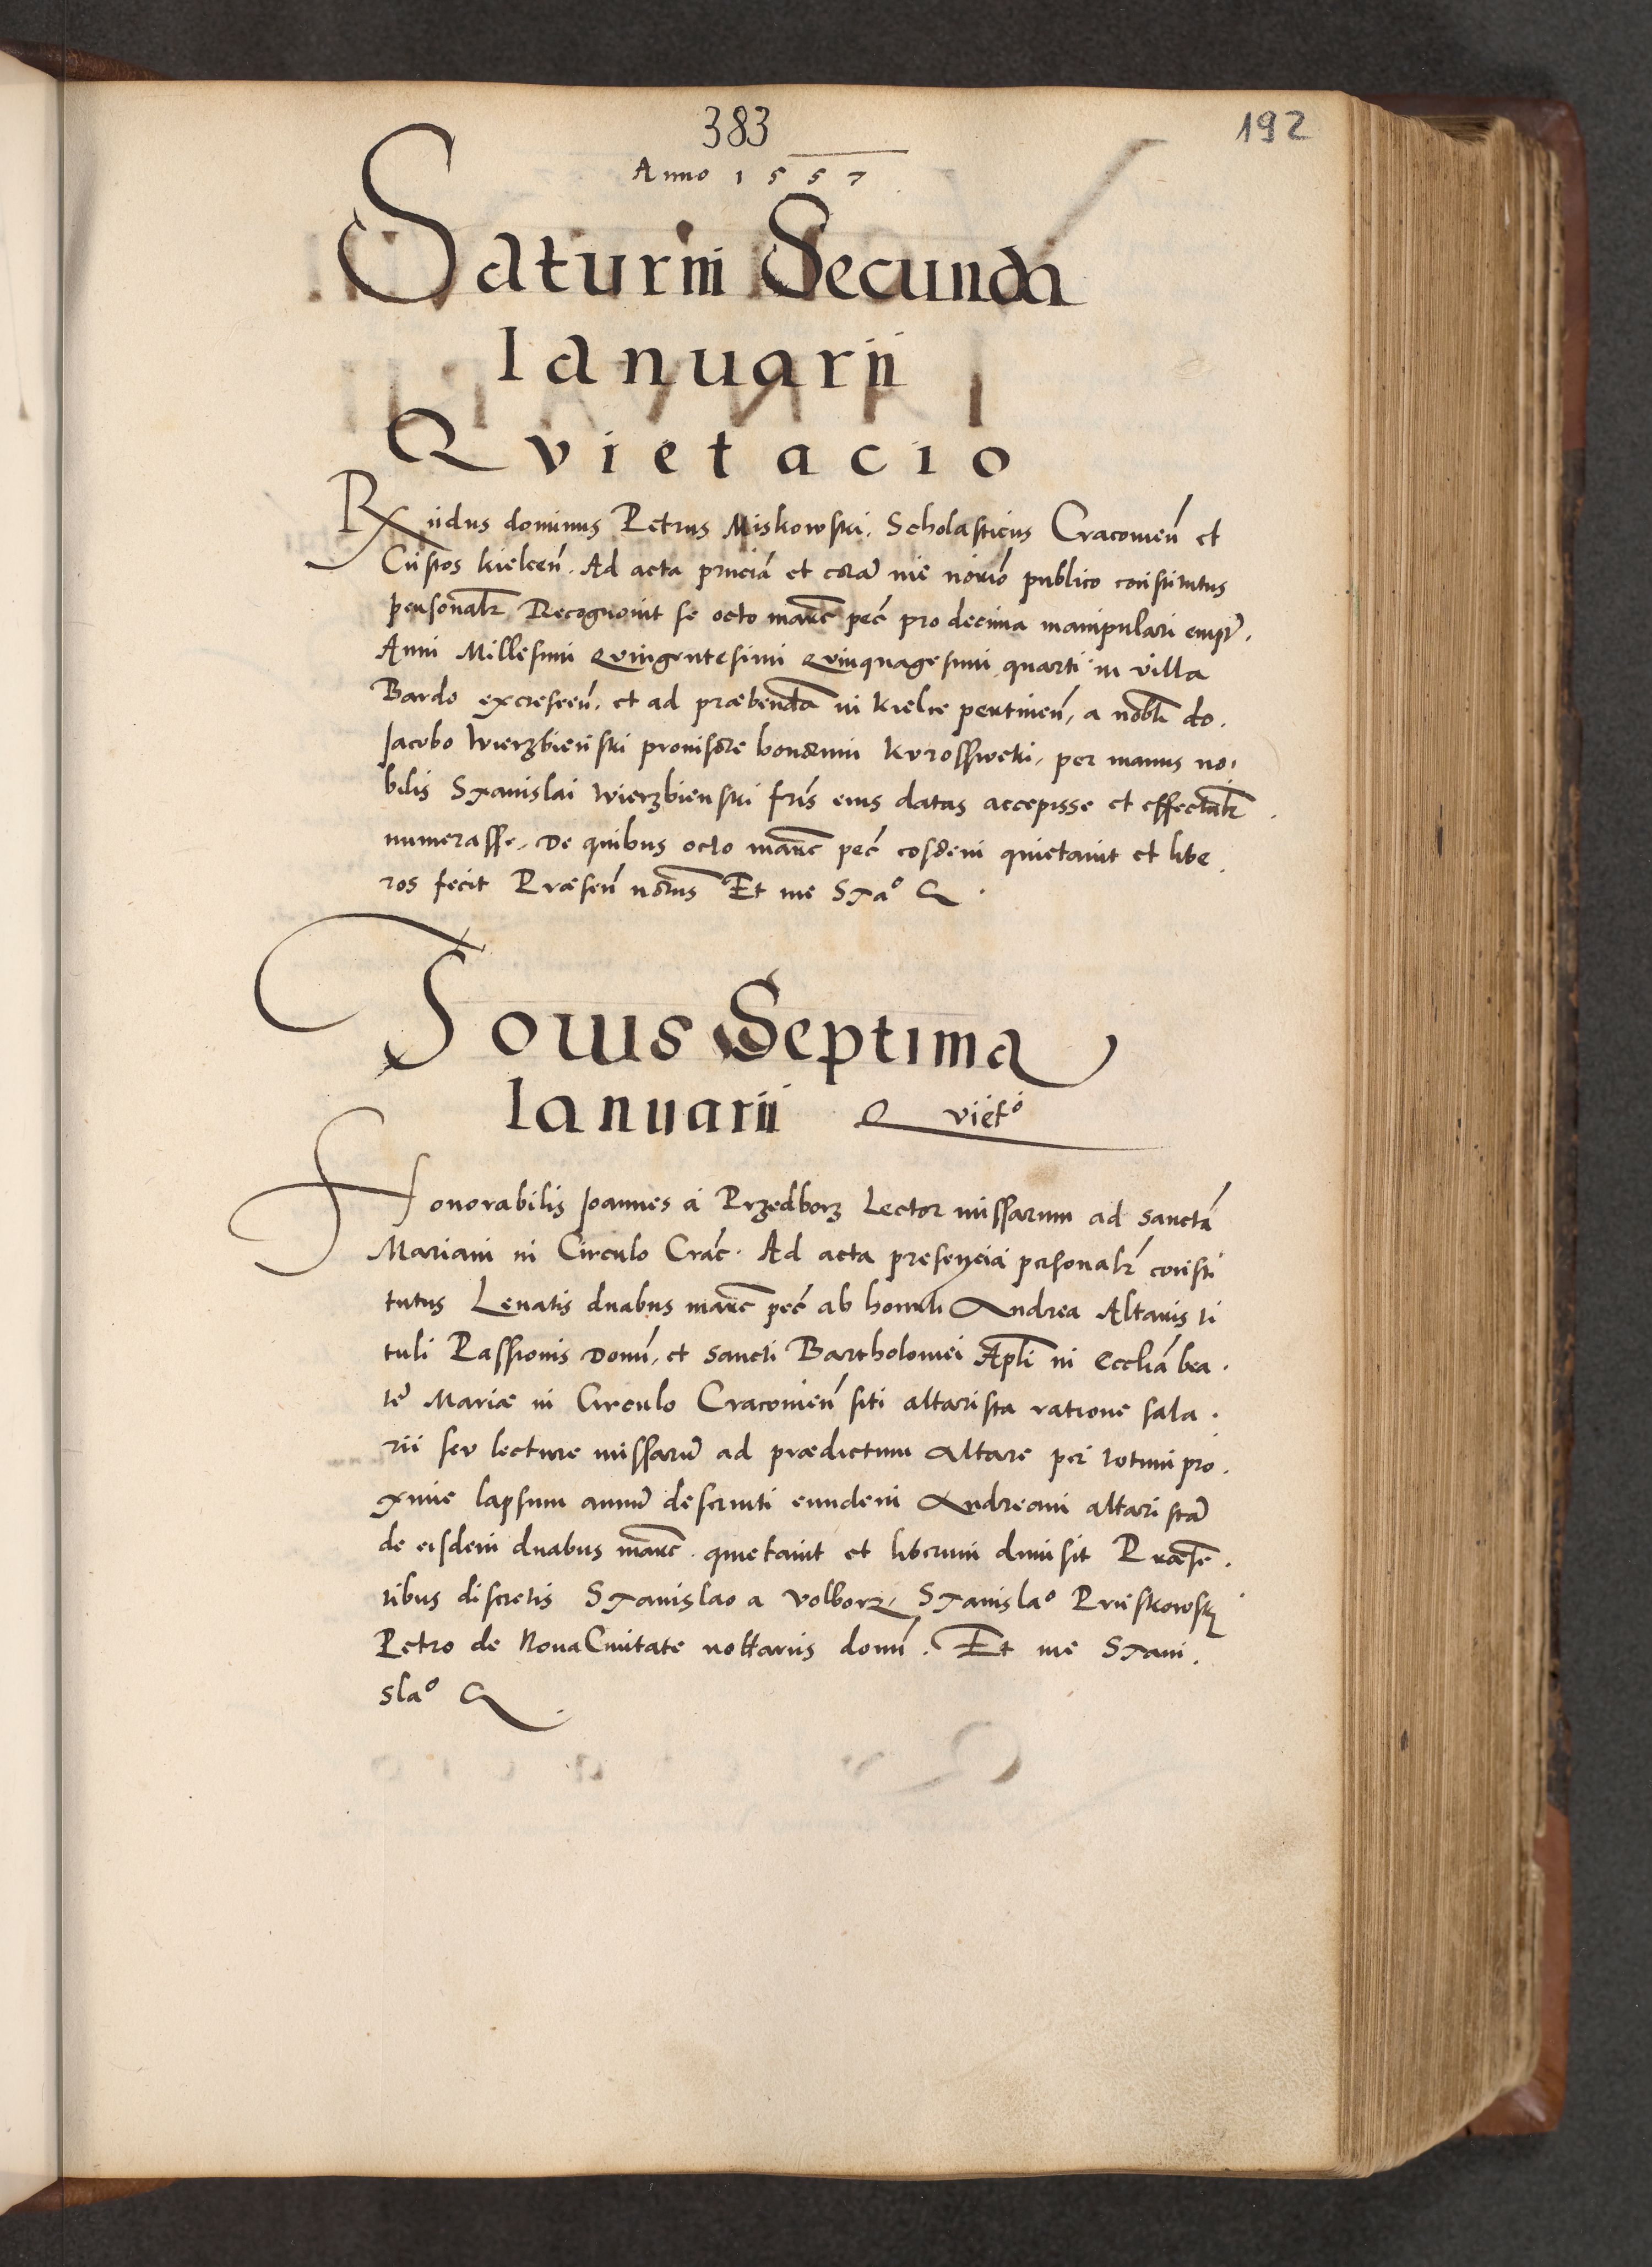 383
192
Anno 1557
Saturni Secunda
Ianuarii
Qvietacio
Rñdus dominus Petrus Miskowski, Scholasticus Cracovieñ et
Custos kielceñ. Ad acta pñciã et corã me nõrio publico constitutus
personalr̃ Recognovit se octo marc̃ pec̃ pro decima manipulari empt̃.
Anni Millesimi Quingentesimi Quinquagesimi quarti in villa
Bardo excresceñ, et ad præbendã in kielce pertineñ, a nobli do.
Jacobo Wierzbienski provisore bonorum kvrossweki, per manus no,
bilis Stanislai Wierzbienski frĩs eius datas accepisse et effectualr̃
numerasse, De quibus octo marc̃ pec̃ eosdem quietavit et libe,
ros fecit Præseñ notus Et me Stao &
Jovis Septima
Ianuarii Qvieto
Honorabilis Joannes a Przedborz Lector missarum ad sanctã
Mariam in Circulo Crac̃. Ad acta presencia personalr̃ consti
tutus Levatis duabus marc̃ pec̃ ab honorli Andrea Altaris ti
tuli Passionis Domi, et Sancti Bartholomei Apli in Eccliã bea.
te Mariæ in Circulo Cracovieñ siti altarista ratione sala.
rii sev lecture missarũ ad prædictum altare per totum pro.
xime lapsum annũ deserviti eundem Andream altaristã
de eisdem duabus marc̃. quietavit et liberum dimisit Præsẽ.
tibus discretis Stanislao a Volborz, Stanislao
Petro de Nova Civitate nottariis domi. Et me Stani.
slao &